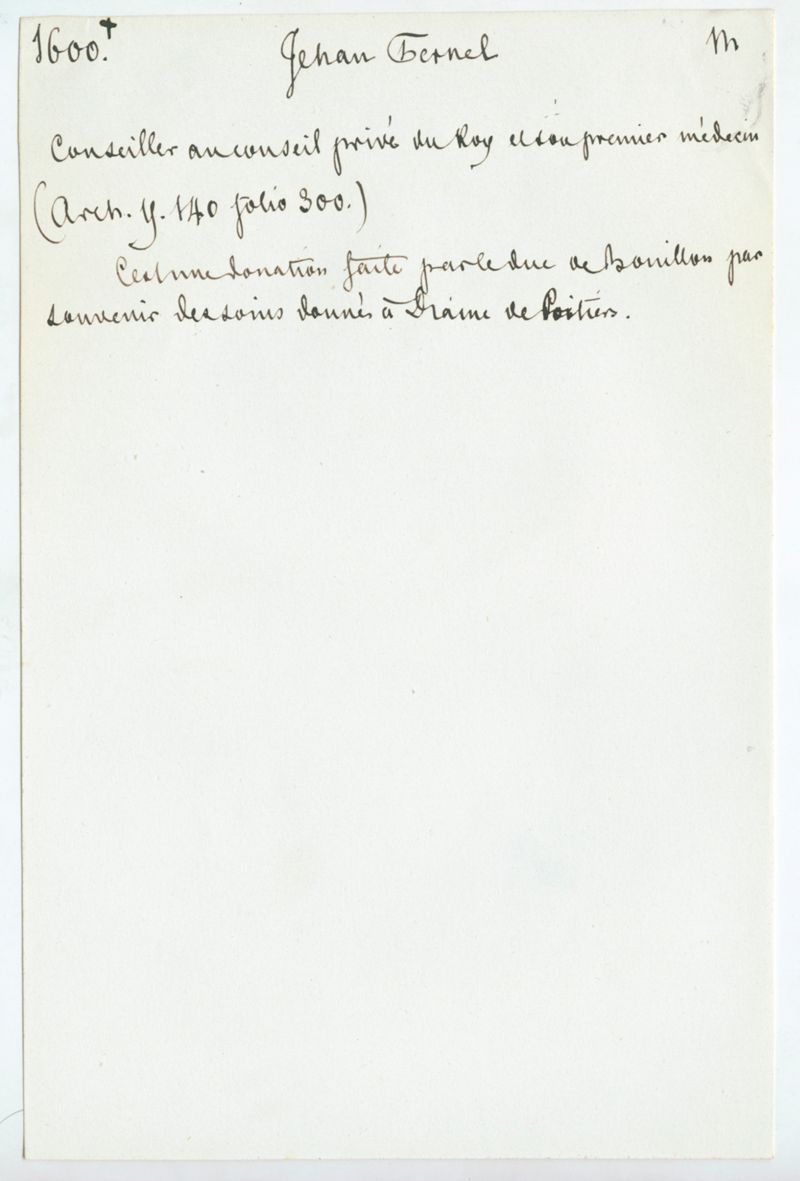 1600.+ Jehan Fernel M
Conseiller au conseil privé du Roy et son premier médecin
(Arch. Y. 140 folio 300.)
C'est une donation faite par le duc de Bouillon par
souvenir des soins donnés à Diane de Poitiers.